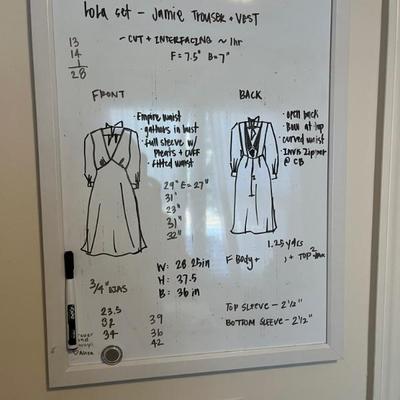 Lola set - Jamie Trouser + VEST
- CUT + INTERFACING ~ 1hr
F = 7.5" B = 7"
13
14
1
28
FRONT
• Empire waist
• gathers in bust
• full sleeve w/ Pleats + CUFF
• fitted waist
BACK
• open back
• Bow at top
• curved waist
• Invis Zipper @ CB
29" E = 27"
31"
23"
31"
32"
1.25 yds
F Body +
; + TOP
W: 28.25in
H: 37.5
B: 36in
3/4" BIAS
23.5
32
34
39
36
42
TOP SLEEVE - 2 1/2"
BOTTOM SLEEVE - 2 1/2"
EXPO